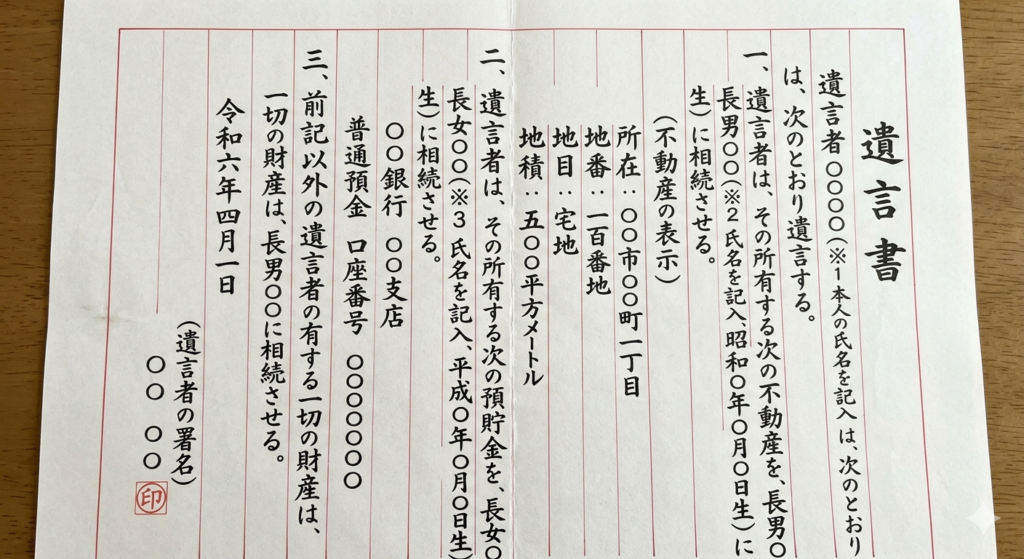 遺言書
遺言者 〇〇〇〇(※1 本人の氏名を記入 は、次のとおり
は、次のとおり遺言する。
一、遺言者は、その所有する次の不動産を、長男〇
長男〇〇(※2 氏名を記入、昭和〇年〇月〇日生)に
生)に相続させる。
(不動産の表示)
所在：〇〇市〇〇町一丁目
地番：一百番地
地目：宅地
地積：五〇〇平方メートル
二、遺言者は、その所有する次の預貯金を、長女〇
長女〇〇(※3 氏名を記入、平成〇年〇月〇日生)
生)に相続させる。
〇〇銀行 〇〇支店
普通預金 口座番号 〇〇〇〇〇〇〇
三、前記以外の遺言者の有する一切の財産は、
一切の財産は、長男〇〇に相続させる。
令和六年四月一日
(遺言者の署名)
〇〇 〇〇 印